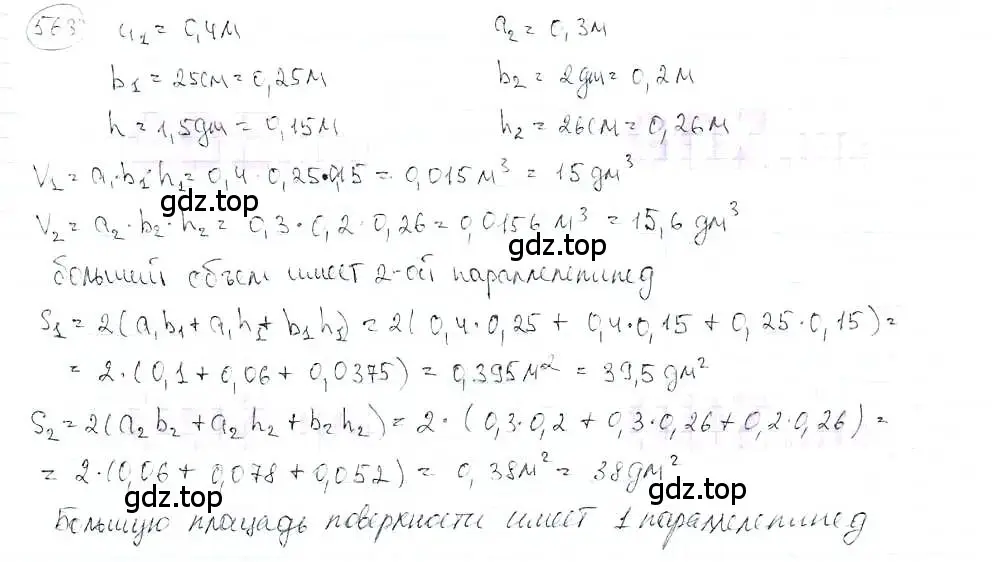 563 a₁ = 0,4м a₂ = 0,3м
b₁ = 25см = 0,25м b₂ = 2дм = 0,2м
h = 1,5дм = 0,15м h₂ = 26см = 0,26м
V₁ = a₁·b₁·h₁ = 0,4·0,25·0,15 = 0,015м³ = 15дм³
gdz.top
V₂ = a₂·b₂·h₂ = 0,3·0,2·0,26 = 0,0156 м³ = 15,6 дм³
gdz.top
больший объем имеет 2-ой параллелепипед
S₁ = 2(a₁b₁ + a₁h₁ + b₁h₁) = 2(0,4·0,25 + 0,4·0,15 + 0,25·0,15) =
= 2·(0,1 + 0,06 + 0,0375) = 0,395м² = 39,5дм²
gdz.top
S₂ = 2(a₂b₂ + a₂h₂ + b₂h₂) = 2·(0,3·0,2 + 0,3·0,26 + 0,2·0,26) =
= 2·(0,06 + 0,078 + 0,052) = 0,38м² = 38дм²
gdz.top gdz.top
Большую площадь поверхности имеет 1 параллелепипед
gdz.top